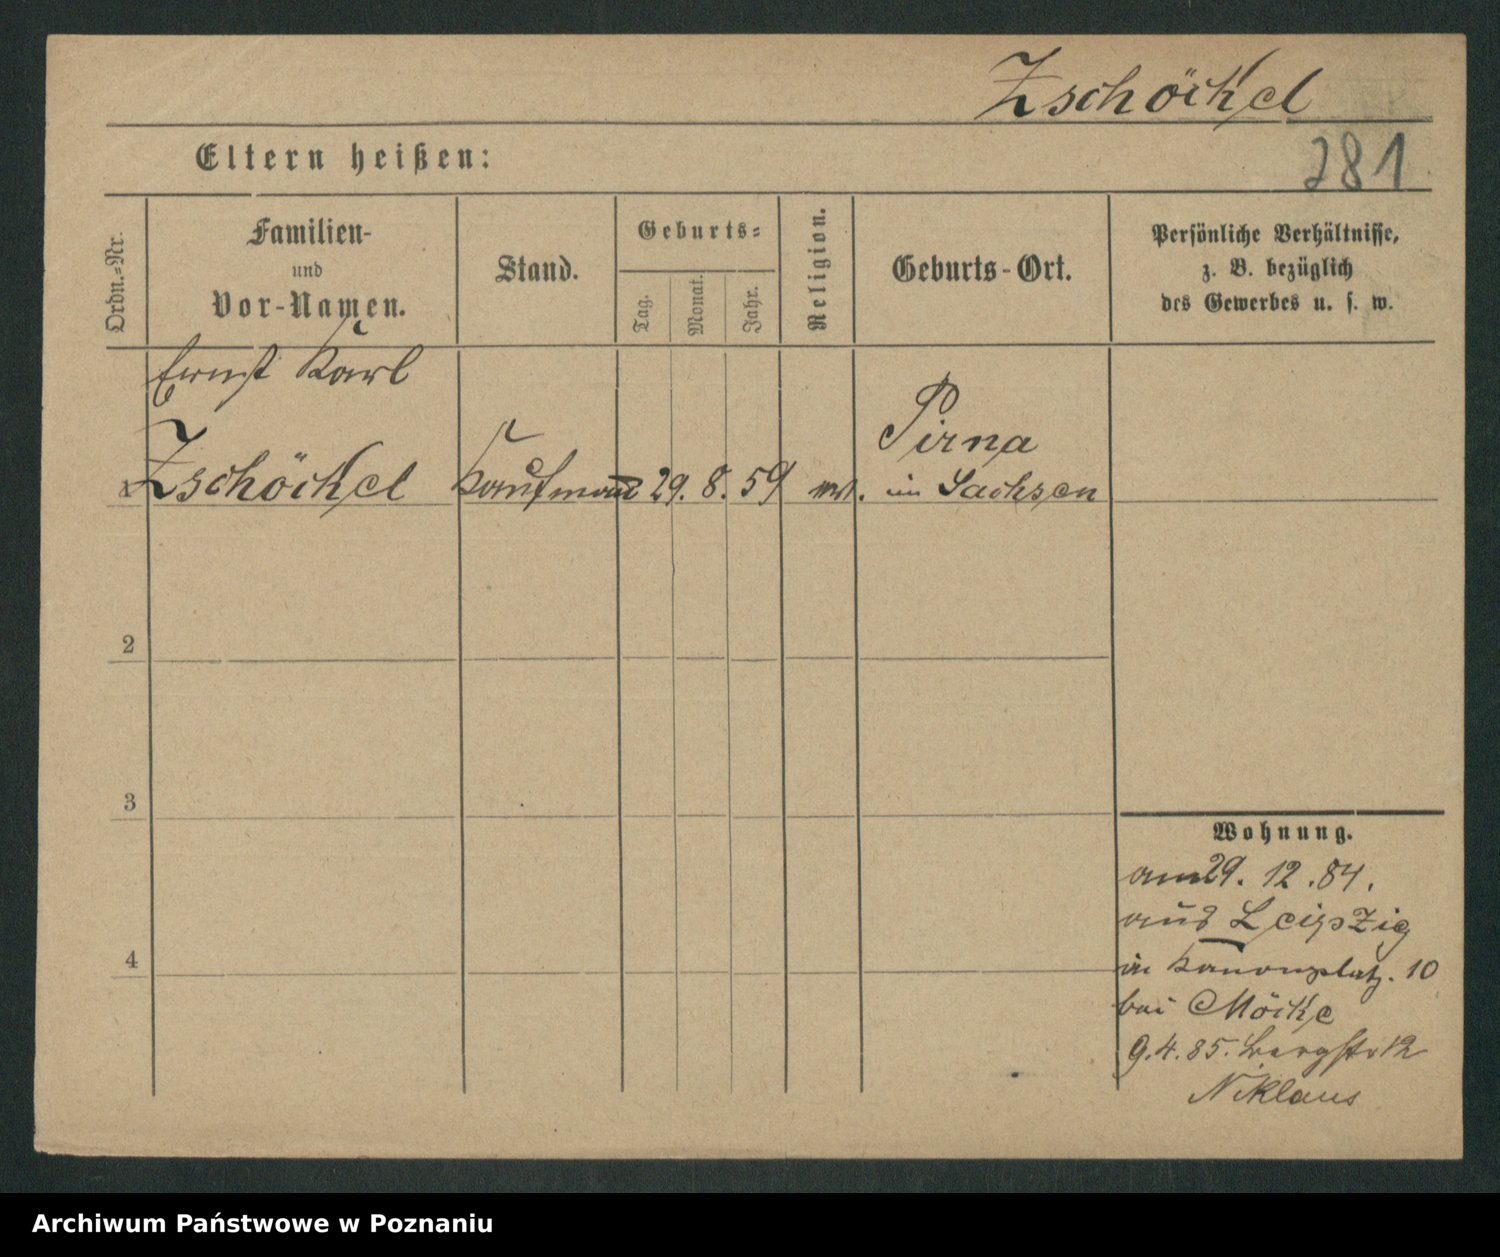 Zschöckel
Eltern heißen:
281
Ordn.-Nr.
Familien-
und
Vor-Namen.
Stand.
Geburts-
Tag.
Monat.
Jahr.
Religion.
Geburts-Ort.
Persönliche Verhältnisse,
z. B. bezüglich
des Gewerbes u. s. w.
Ernst Karl
1 Zschöckel Kaufmann 29. 8. 59
Pirna
im Sachsen
2
3
4
Wohnung.
am 29. 12. 84.
aus Leipzig
in Kanonplatz. 10
bei Möcke
9.4.85. Bergstr 12
Niklaus
Archiwum Państwowe w Poznaniu